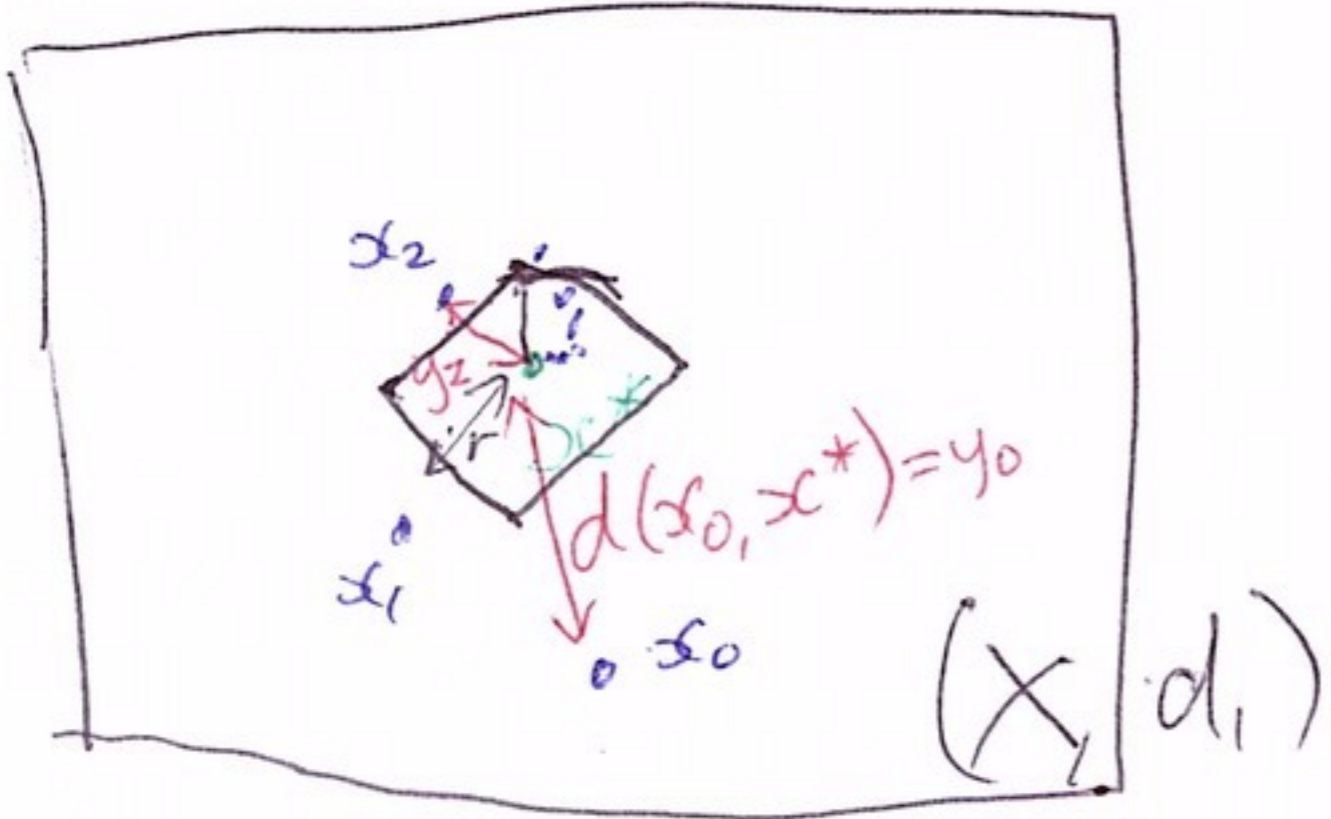 x₂
y₂
r
x*
d(x₀, x*) = y₀
x₁
x₀
(X, d₁)